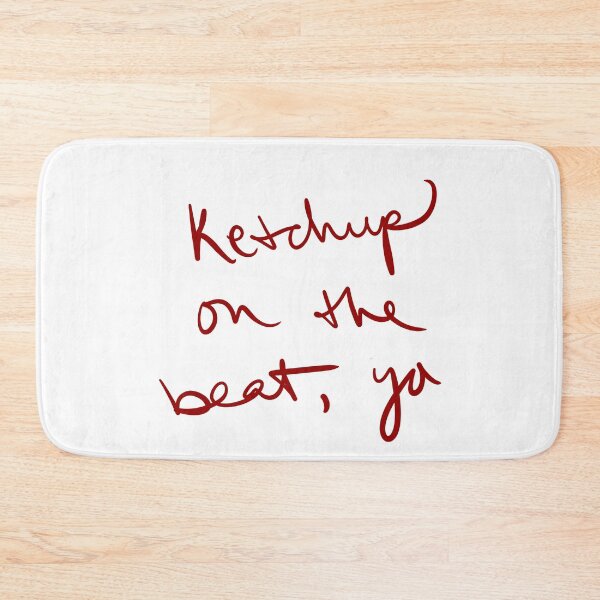 Ketchup
on the
beat, ya